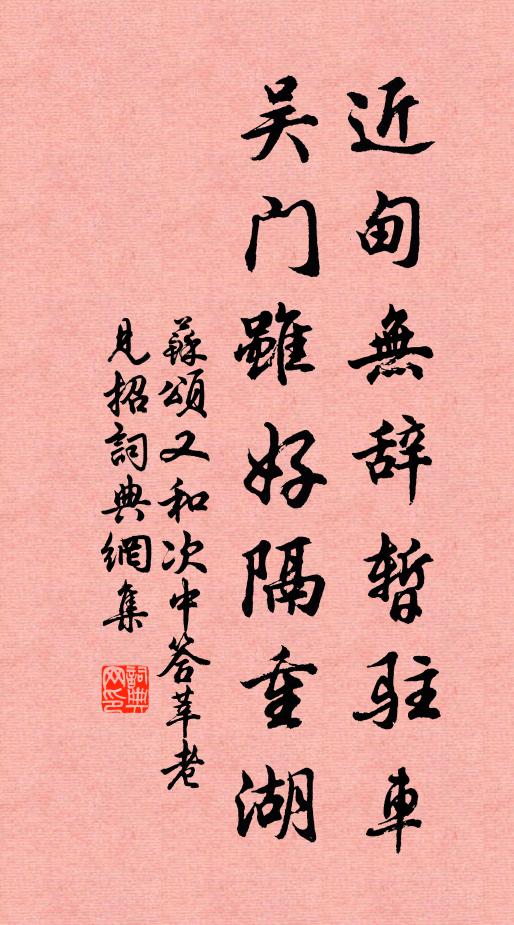 近甸無辞暫駐車
吴门雖好隔重湖
蘇頌又和次中答莘老
見招詞典網集
詞典网印